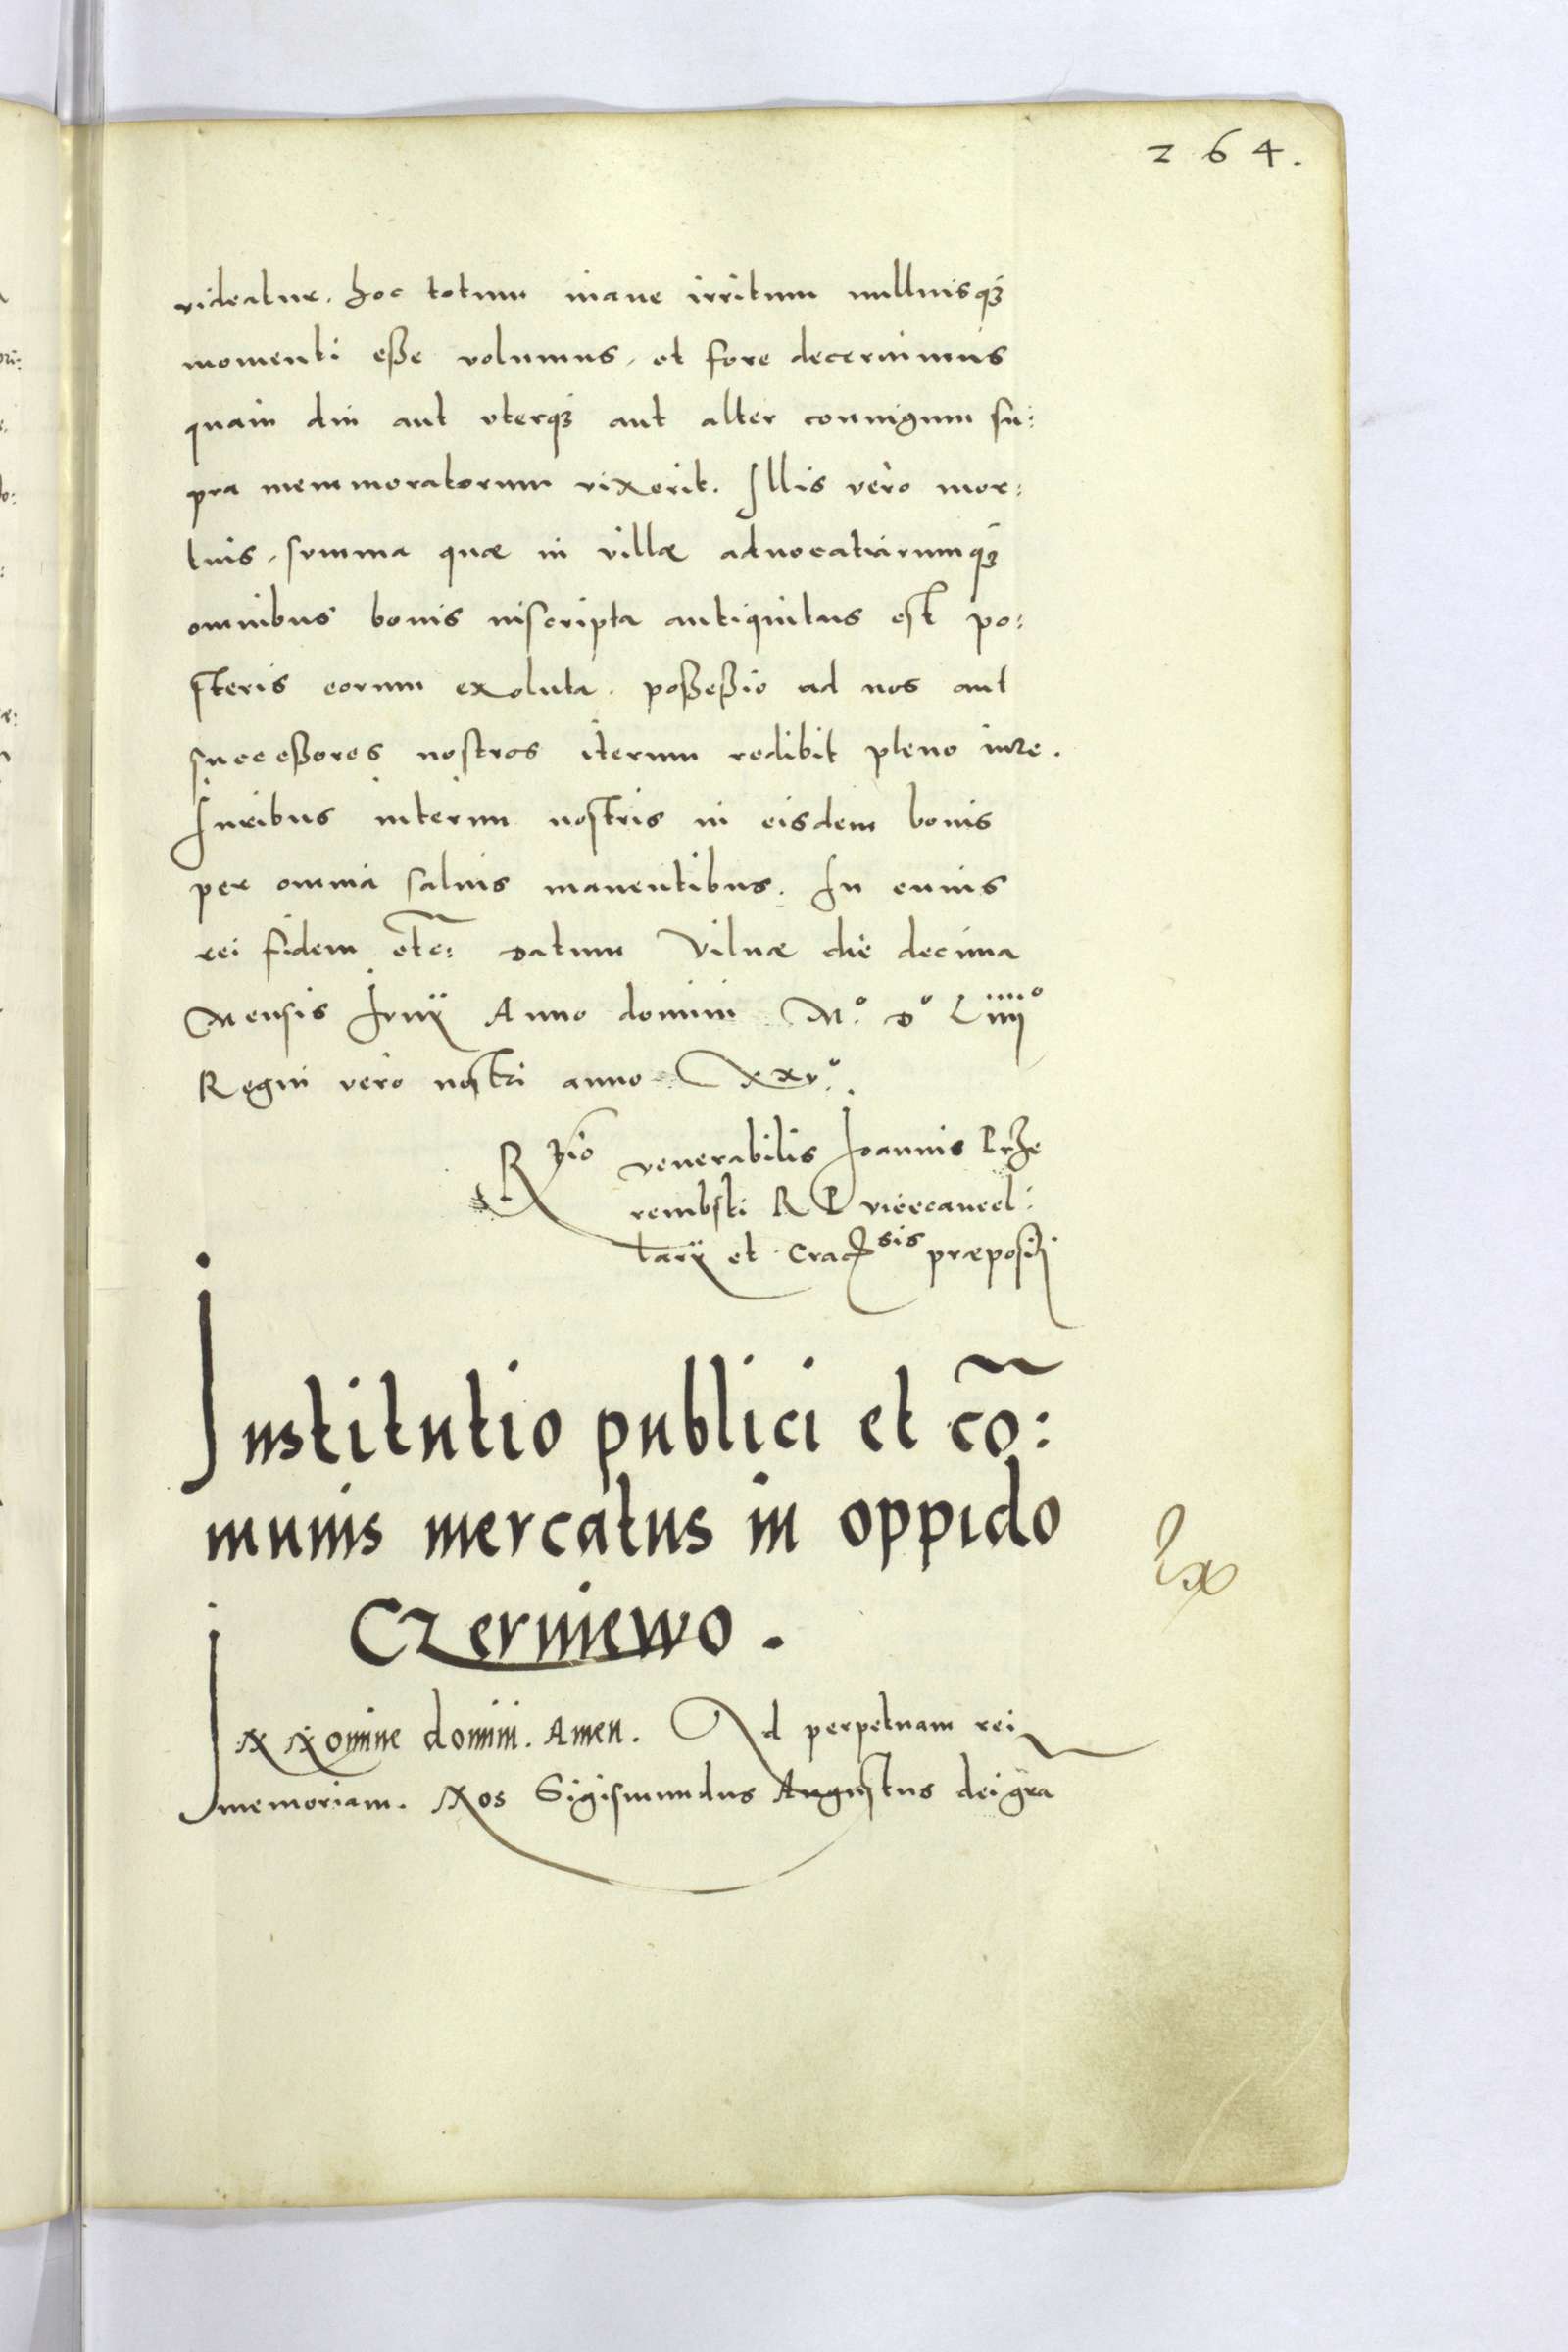 264.
videatur. hoc totum inane irritum nulliusq́ꝫ
momenti eße volumus, et fore decernimus
quam diu aut vterqꝫ aut alter coniugum su:
pra memmoratorum vixerit. Illis vero mor:
tuis, summa quæ in villæ aduocatiarumqꝫ
omnibus bonis inscripta antiquitus est po:
steris eorum exoluta. poßeßio ad nos aut
succeßores nostros iterum redibit pleno iure.
Iuribus interim nostris in eisdem bonis
per omnia saluis manentibus. In cuius
rei fidem etc: Datum Vilnæ die decima
Mensis Iunij Anno domini M.º Dº Liiijº
Regni vero nostri anno XXvº.
Rtio venerabilis Ioannis Prze
rembski R P vicecancel:
larij et Cracsis præpositi
Institutio publici et cõ:
munis mercatus in oppido
Czerniewo.
Ex
In Nomine domini. Amen. Ad perpetuam rei
memoriam. Nos Sigismundus Augustus dei gr̃a